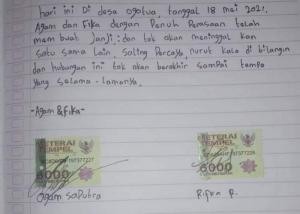 hari ini Di desa ogotua, tanggal 18 mei 2021,
Agam dan Fika dengan Penuh Perasaan telah
membuat Janji: dan tak akan meninggal kan
satu sama lain, saling Percaya, nurut kalo di bilangin
dan hubungan ini tak akan berakhir sampai tempo
yang selama-lamanya.
-Agam &fika-
METERAI
TEMPEL
6000
METERAI
TEMPEL
6000
Agam saputra
Rifka R.